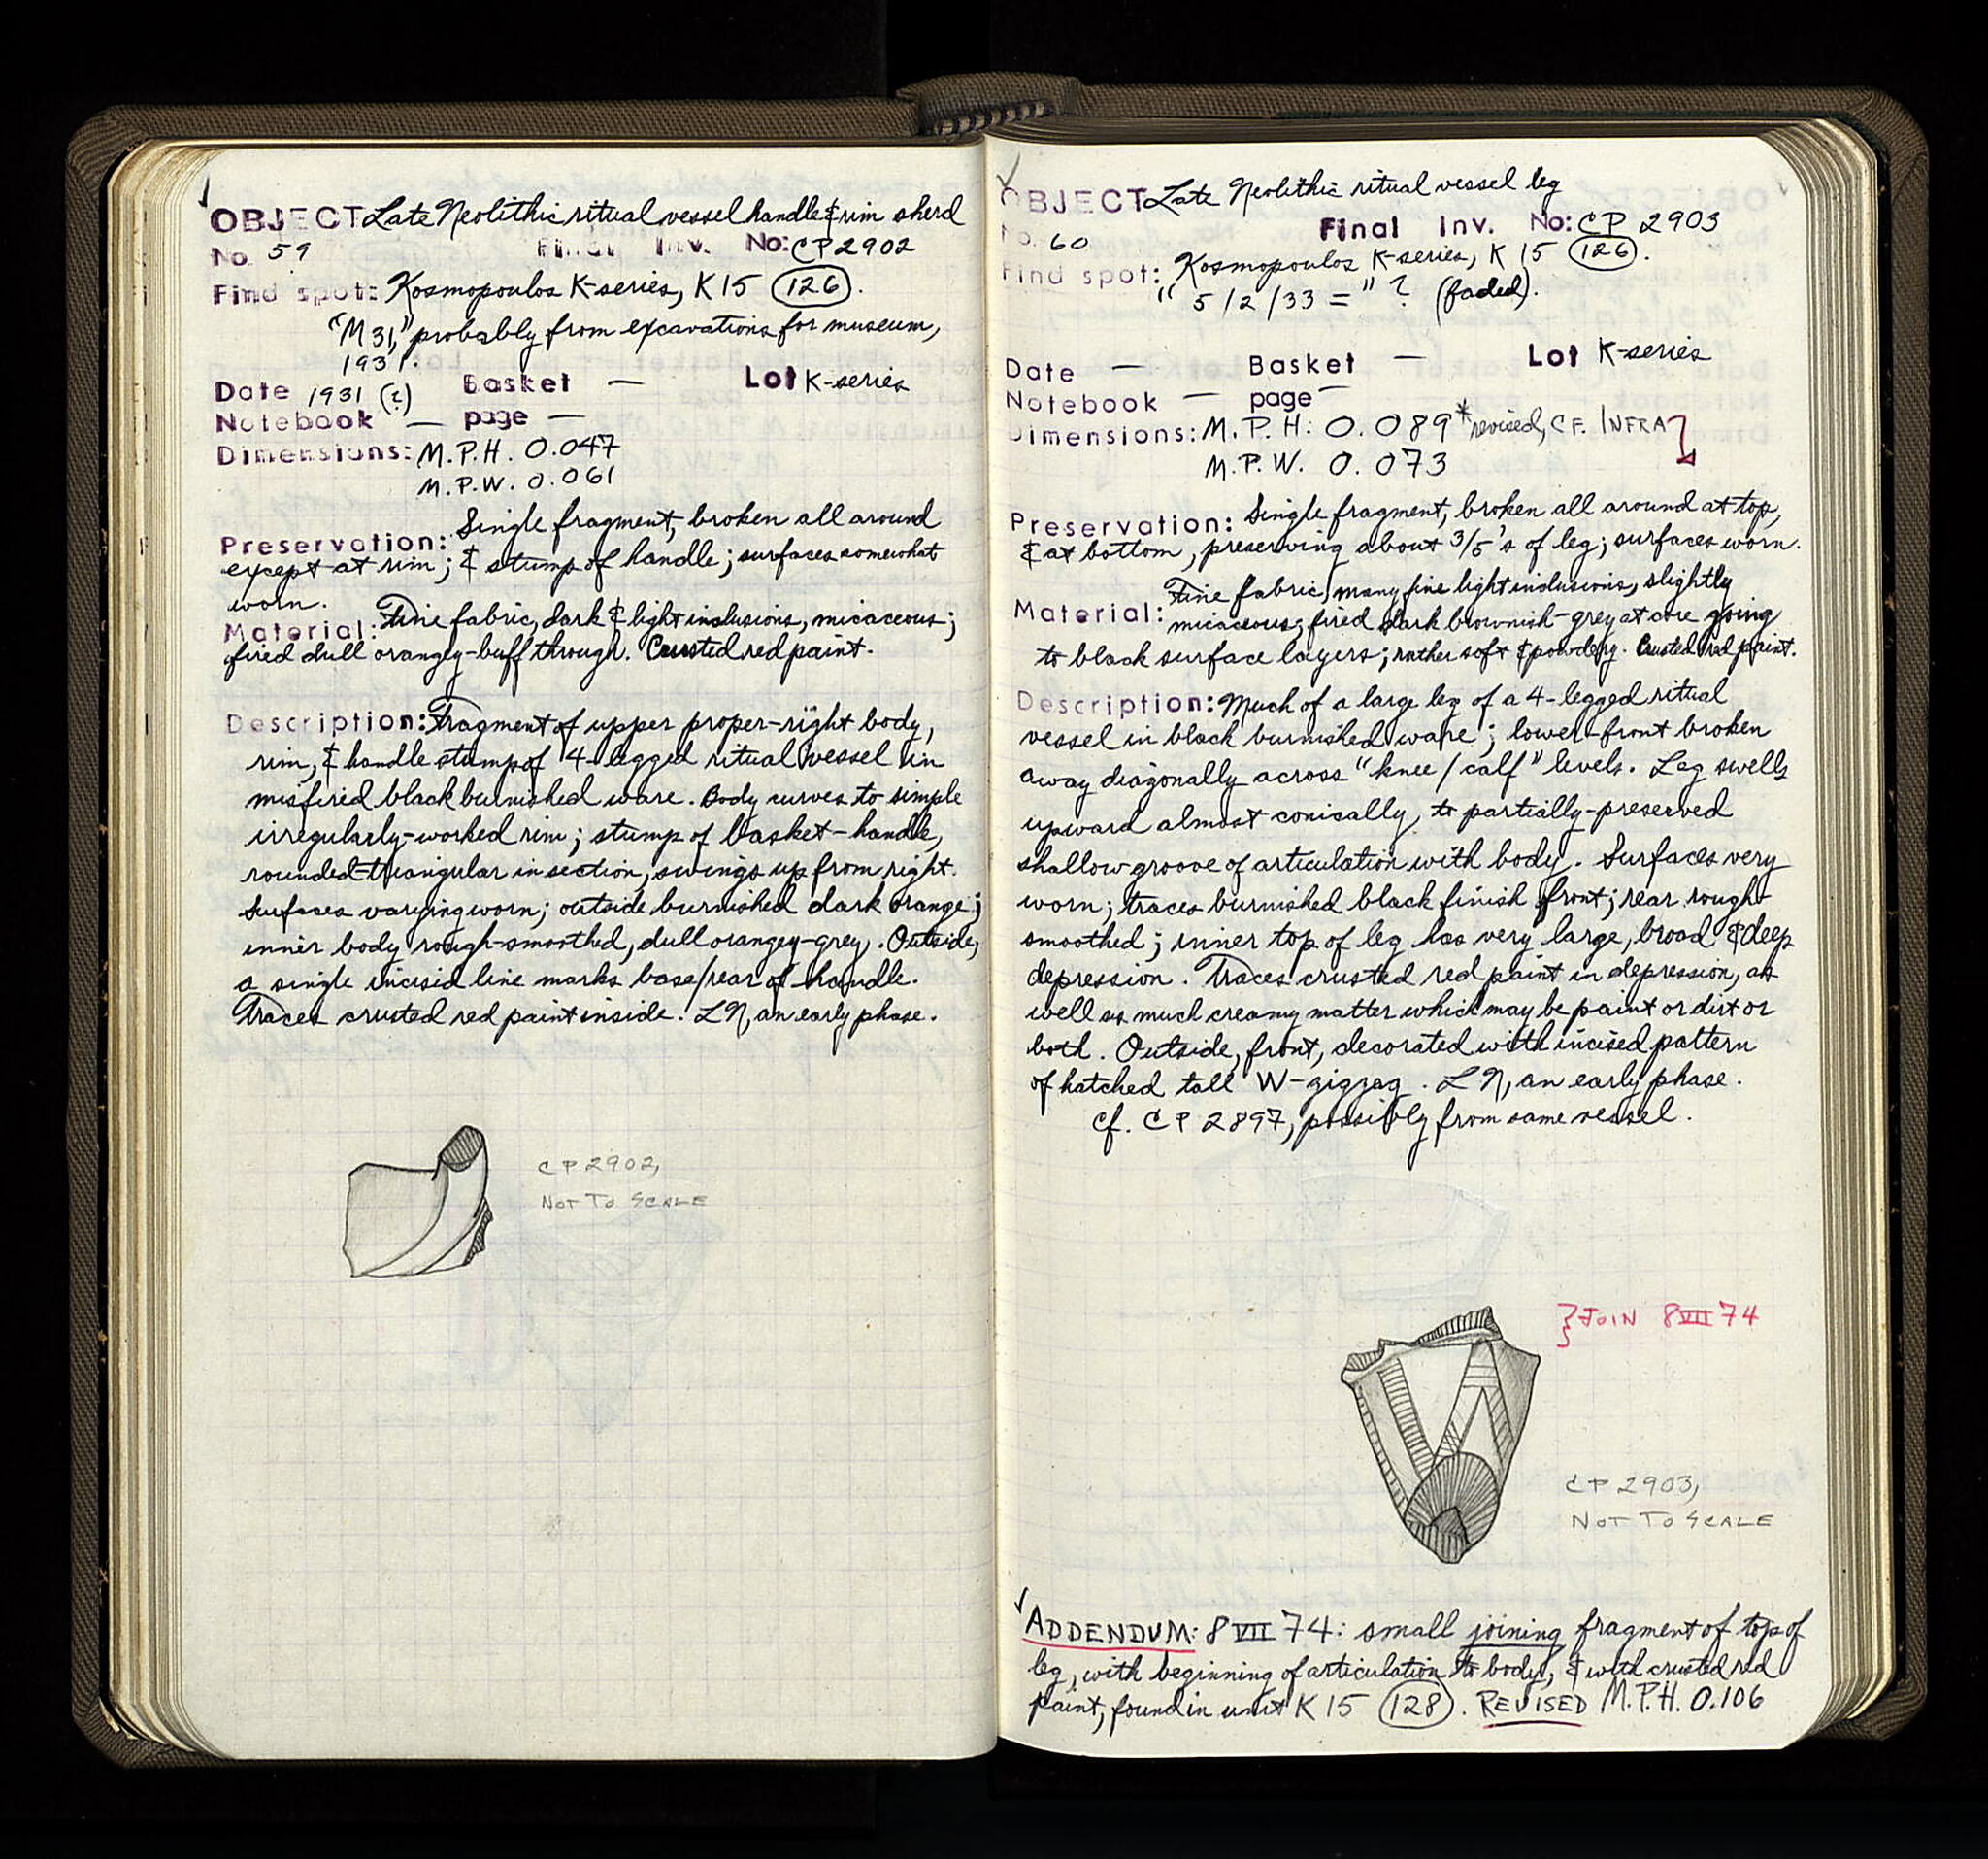 OBJECT Late Neolithic ritual vessel handle & rim sherd
No. 59 Final Inv. No: CP 2902
Find spot: Kosmopoulos K-series, K 15 (126).
"M 31," probably from excavations for museum,
1931.
Date 1931 (?) Basket — Lot K-series
Notebook — page —
Dimensions: M.P.H. 0.047
M.P.W. 0.061
Preservation: Single fragment, broken all around
except at rim; & stump of handle; surfaces somewhat
worn.
Material: Fine fabric, dark & light inclusions, micaceous;
fired dull orangey-buff through. Crusted red paint.
Description: Fragment of upper proper-right body,
rim, & handle stump of 4-legged ritual vessel in
misfired black burnished ware. Body curves to simple
irregularly-worked rim; stump of basket-handle,
rounded-triangular in section, swings up from right.
Surfaces varying worn; outside burnished dark orange;
inner body rough-smoothed, dull orangey-grey. Outside,
a single incised line marks base/rear of handle.
Traces crusted red paint inside. LN, an early phase.
CP 2902,
NOT TO SCALE
OBJECT Late Neolithic ritual vessel leg
No. 60 Final Inv. No: CP 2903
Find spot: Kosmopoulos K-series, K 15 (126).
" 5/2/33 = " ? (faded).
Date — Basket — Lot K-series
Notebook — page —
Dimensions: M.P.H. 0.089 * revised, CF. INFRA
M.P.W. 0.073
Preservation: Single fragment, broken all around at top,
& at bottom, preserving about 3/5's of leg; surfaces worn.
Material: Fine fabric, many fine light inclusions, slightly
micaceous; fired dark brownish-grey at core going
to black surface layers; rather soft & powdery. Crusted red paint.
Description: Much of a large leg of a 4-legged ritual
vessel in black burnished ware; lower front broken
away diagonally across "knee/calf" levels. Leg swells
upward almost conically, to partially-preserved
shallow groove of articulation with body. Surfaces very
worn; traces burnished black finish front; rear rough
smoothed; inner top of leg has very large, broad & deep
depression. Traces crusted red paint in depression, as
well as much creamy matter which may be paint or dirt or
both. Outside, front, decorated with incised pattern
of hatched tall W-zigzag. LN, an early phase.
Cf. CP 2897, possibly from same vessel.
} JOIN 8 VII 74
CP 2903,
NOT TO SCALE
ADDENDUM: 8 VII 74: small joining fragment of top of
leg, with beginning of articulation to body, & with crusted red
paint, found in unit K 15 (128). REVISED M.P.H. 0.106